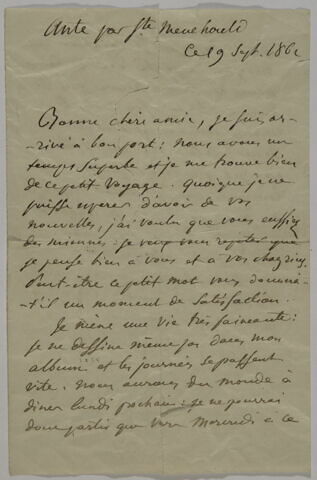 Ante par Ste Menehould
Ce 19 Sept. 1862
Bonne chère amie, je suis ar-
rivé à bon port : nous avons un
temps superbe et je me trouve bien
de ce petit voyage. quoique je ne
puisse espérer d'avoir de vos
nouvelles, j'ai voulu que vous eussiez
des miennes : je veux vous répéter que
je pense bien à vous et à vos chagrins.
Peut être ce petit mot vous donnera
t'il un moment de satisfaction.
Je mène une vie très faineante :
je ne dessine même pas dans mon
album et les journées se passent
vite. nous aurons du monde à
diner lundi prochain : je ne pourrai
donc partir que vers Mercredi à ce